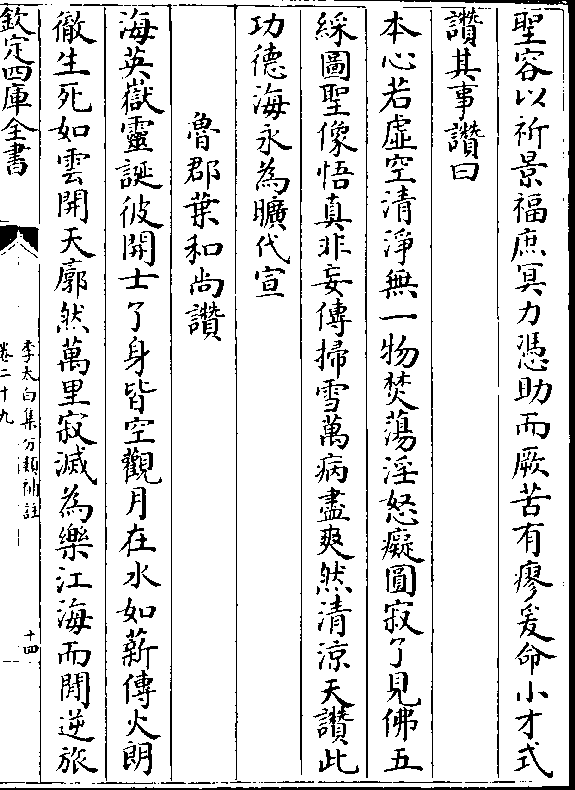 聖容以祈景福庶冥力憑助而厥苦有瘳爰命小才式
讚其事讚曰
本心若虛空清淨無一物焚蕩淫怒癡圓寂了見佛五
綵圖聖像悟真非妄傳掃雪萬病盡爽然清涼天讚此
功德海永為曠代宣
魯郡葉和尚讚
海英嶽靈誕彼開士了身皆空觀月在水如薪傳火朗
徹生死如雲開天廓然萬里寂滅為樂江海而閒逆旅
欽定四庫全書
李太白集分類補註
卷二十九
十四